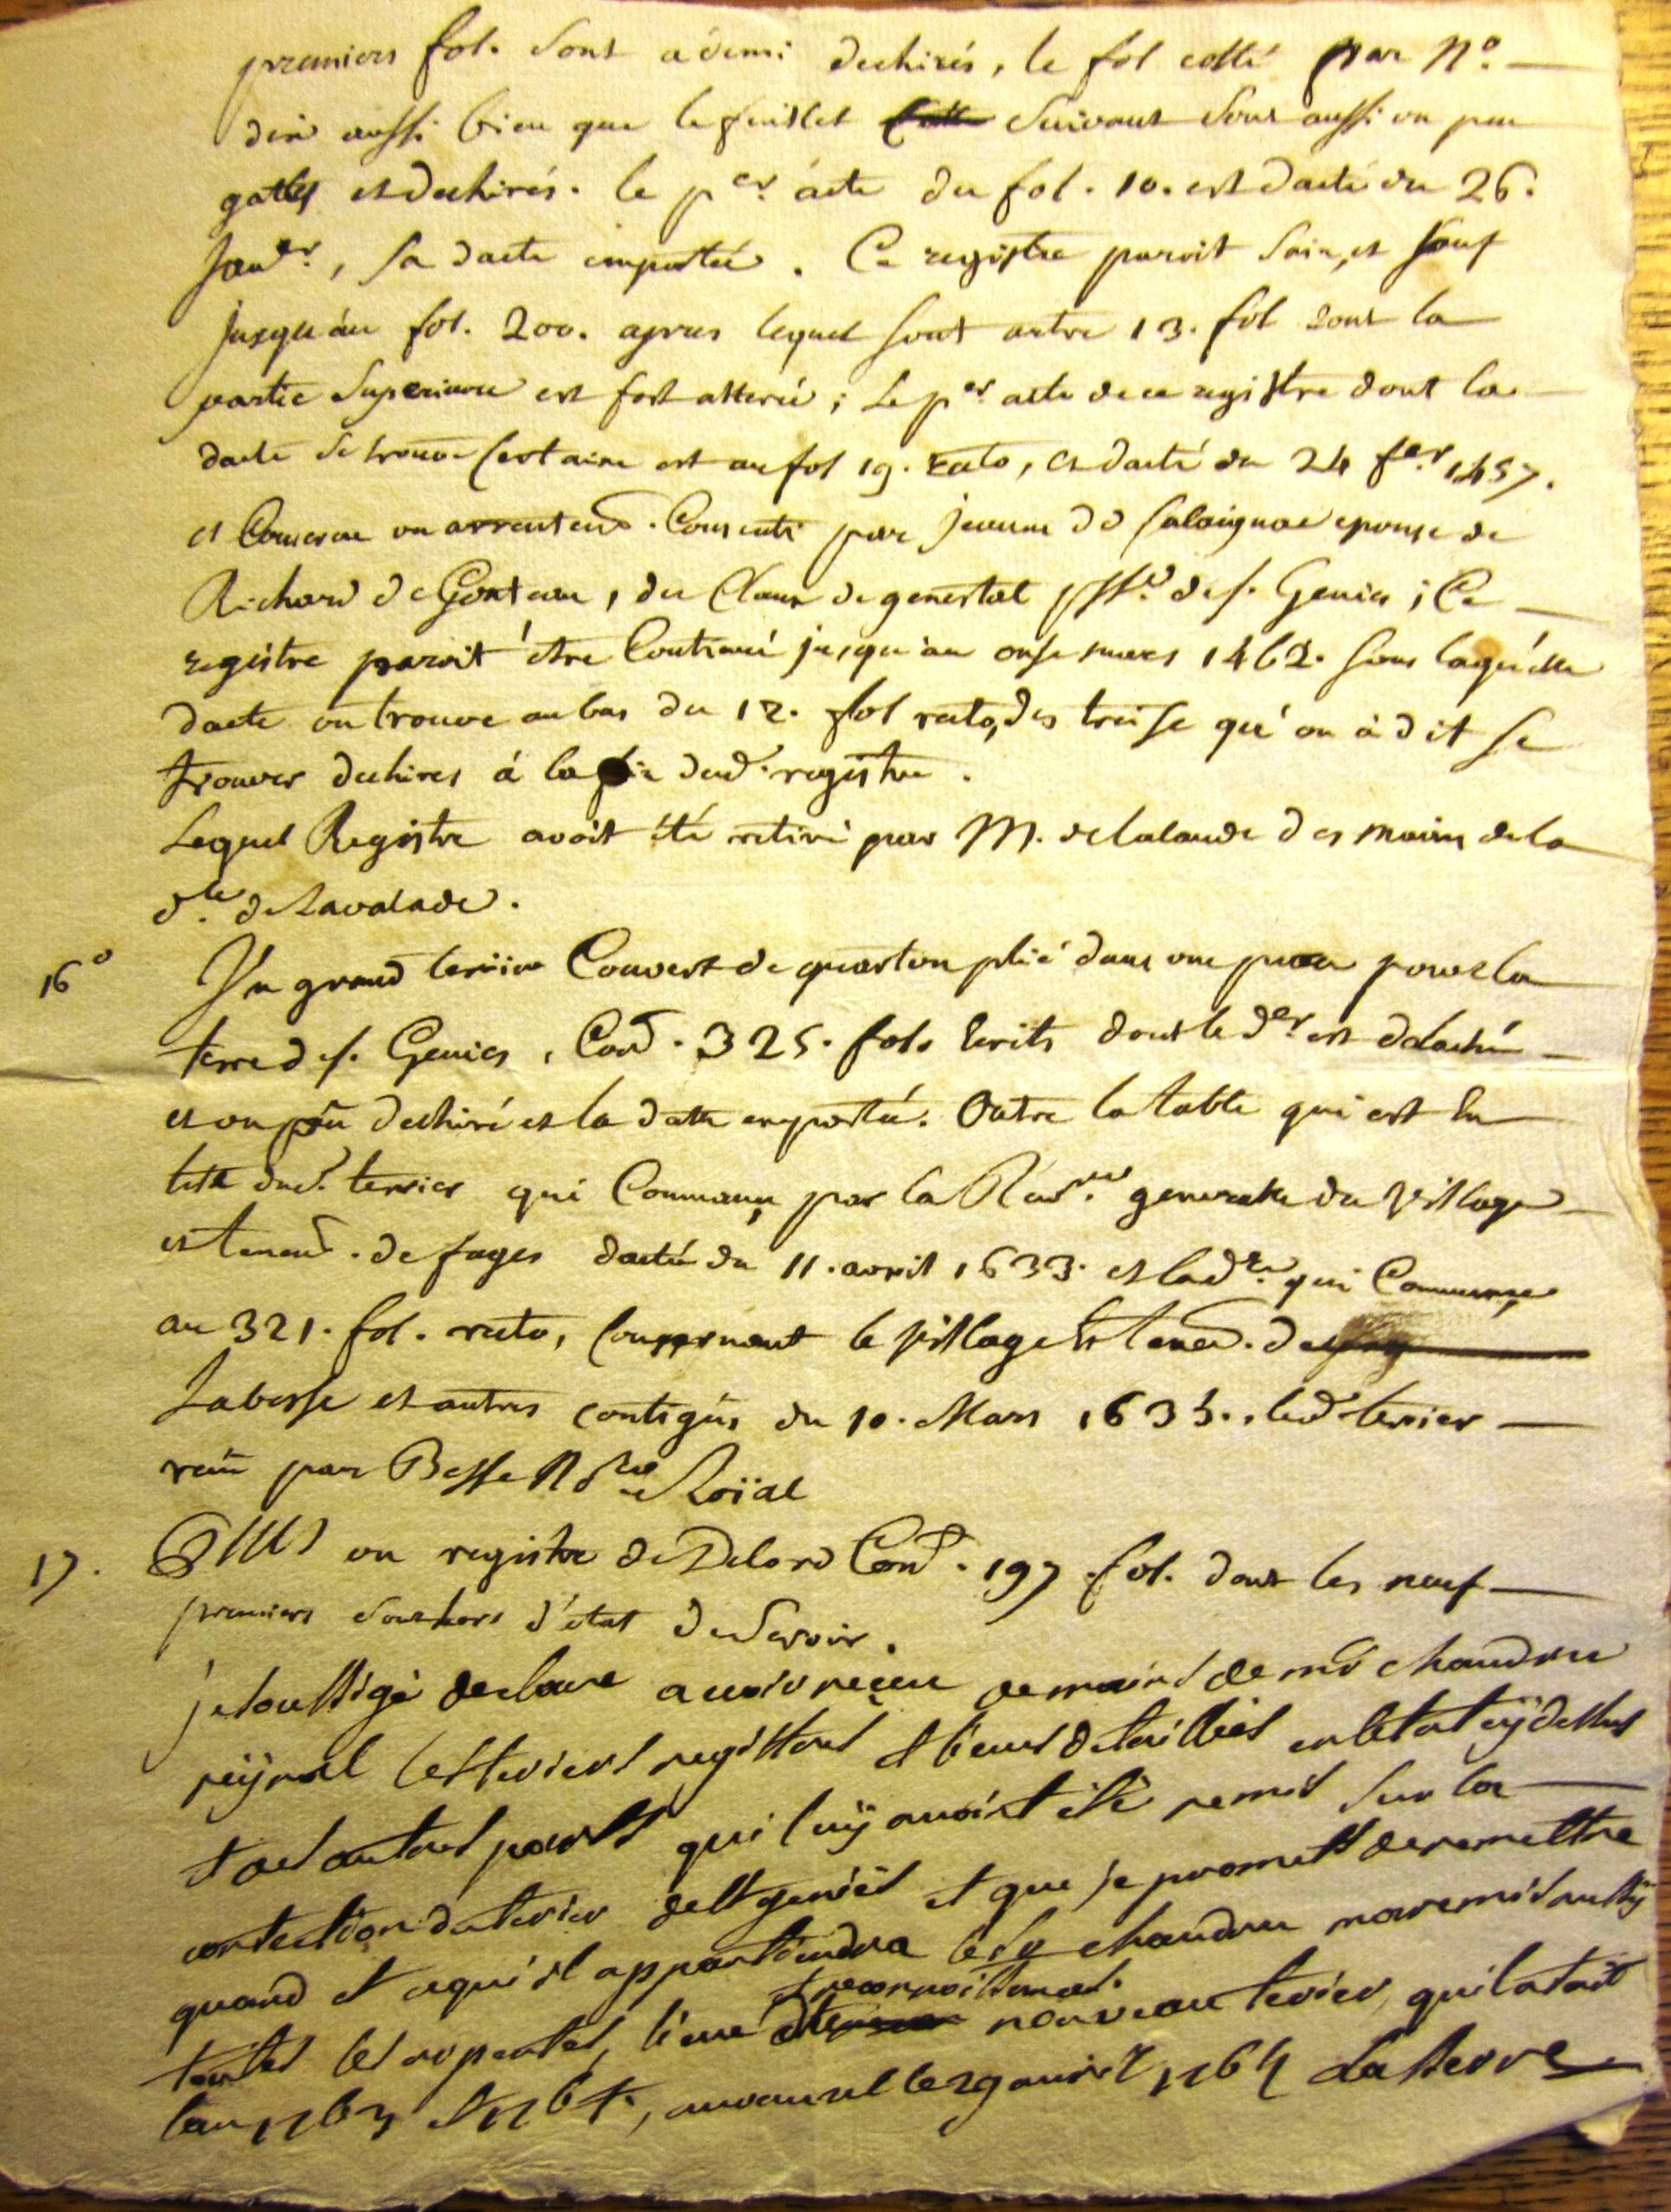 premiers fol. sont a demi dechirés, le fol cotté par N.º
dix aussi bien que le feuillet suivant sont aussi un peu
gattés et dechirés. le p.er acte du fol. 10. est dacté du 26.
Janv.er, sa dacte emportée. Ce registre paroit sain, et sauf
jusqu'au fol. 200. apres lequel sont autre 13. fol dont la
partie superieure est fort alterée; Le p.er acte de ce registre dont la
dacte se trouve certaine est au fol 19. recto, et dacté du 24 f.er 1457.
et concerne un arrentem.d. Consenti par jeanne de Salaignac epouse de
Richard de Gontaut, du Claux de genestal pss.e de s. Genies; Ce
registre paroit être Continué jusqu'au onse mars 1462. sous laquelle
dacte on trouve au bas du 12. fol recto, des treise qu'on à dit se
trouver dechires á la fin dud. registre.
Lequel Registre avoit été retiré par M. de lalande des mains de la
d.lle de Lavalade.
16º Un grand terrier Couvert de quarton plié dans une peau pour la
terre de s. Genies, Con.d. 325. fol. Ecrits dont le d.er est detaché
et un peu dechiré et la datte emportée. Outre la table qui est En
teste dud. terrier qui Commance par la Rec.ce generalle du village
et tenem.d. de fages dactée du 11. avril 1633. et la d.re qui Commance
au 321. fol. recto, concernant le village Et tenem.d. de
Labesse et autres contigus du 10. Mars 1635., led. terrier
reçu par Besse N.re Roïal
17. Plus un registre de Delord Con.d. 197 fol. dont les neuf
premiers sont hors d'état de servir.
je soussigé declare auoir reçeu de mains de mr chaudru
reÿnal les teriers registres et lieues detaillies en letat cÿ dessus
et des autres pars qui luÿ avoint été remis sur la
confection du terier de st genies et que je promets de remettre
quand et a qui il appartiendra le sr chaudru mayant remis aussÿ
toutes les arpentes, lieue et reconnoissances. nouveau terier, quil a fait
lan 1763 et 1764, le 29 1764 Lasserre